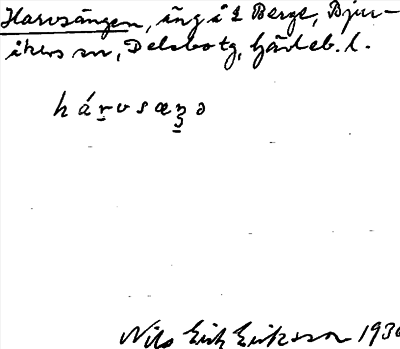 Harvsängen, äng i Ł Berge, Bjur-
åkers sn, Delsbo tg, Gävleb. l.
hárvsæꞫə
Nils Erik Eriksson 1930